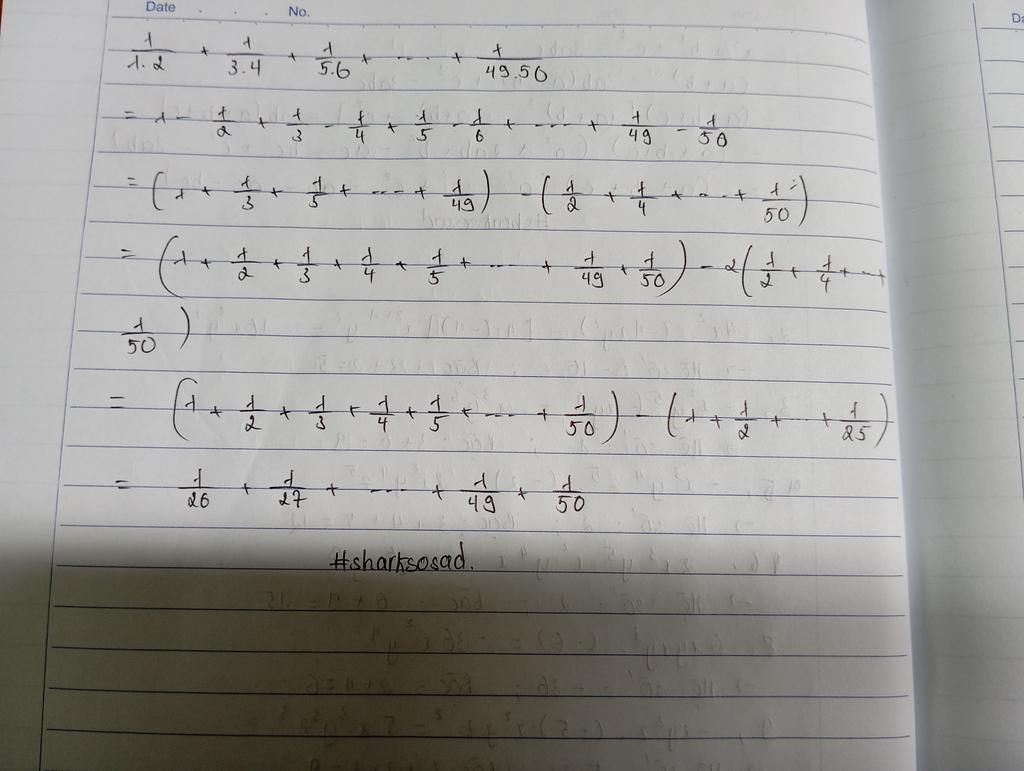 Date . . . No.
1/1.2 + 1/3.4 + 1/5.6 + .... + 1/49.50
= 1 - 1/2 + 1/3 - 1/4 + 1/5 - 1/6 + .... + 1/49 - 1/50
= (1 + 1/3 + 1/5 + .... + 1/49) - (1/2 + 1/4 + ... + 1/50)
= (1 + 1/2 + 1/3 + 1/4 + 1/5 + .... + 1/49 + 1/50) - 2(1/2 + 1/4 + ...+
1/50)
= (1 + 1/2 + 1/3 + 1/4 + 1/5 + .... + 1/50) - (1 + 1/2 + ... + 1/25)
= 1/26 + 1/27 + .... + 1/49 + 1/50
#sharksosad.